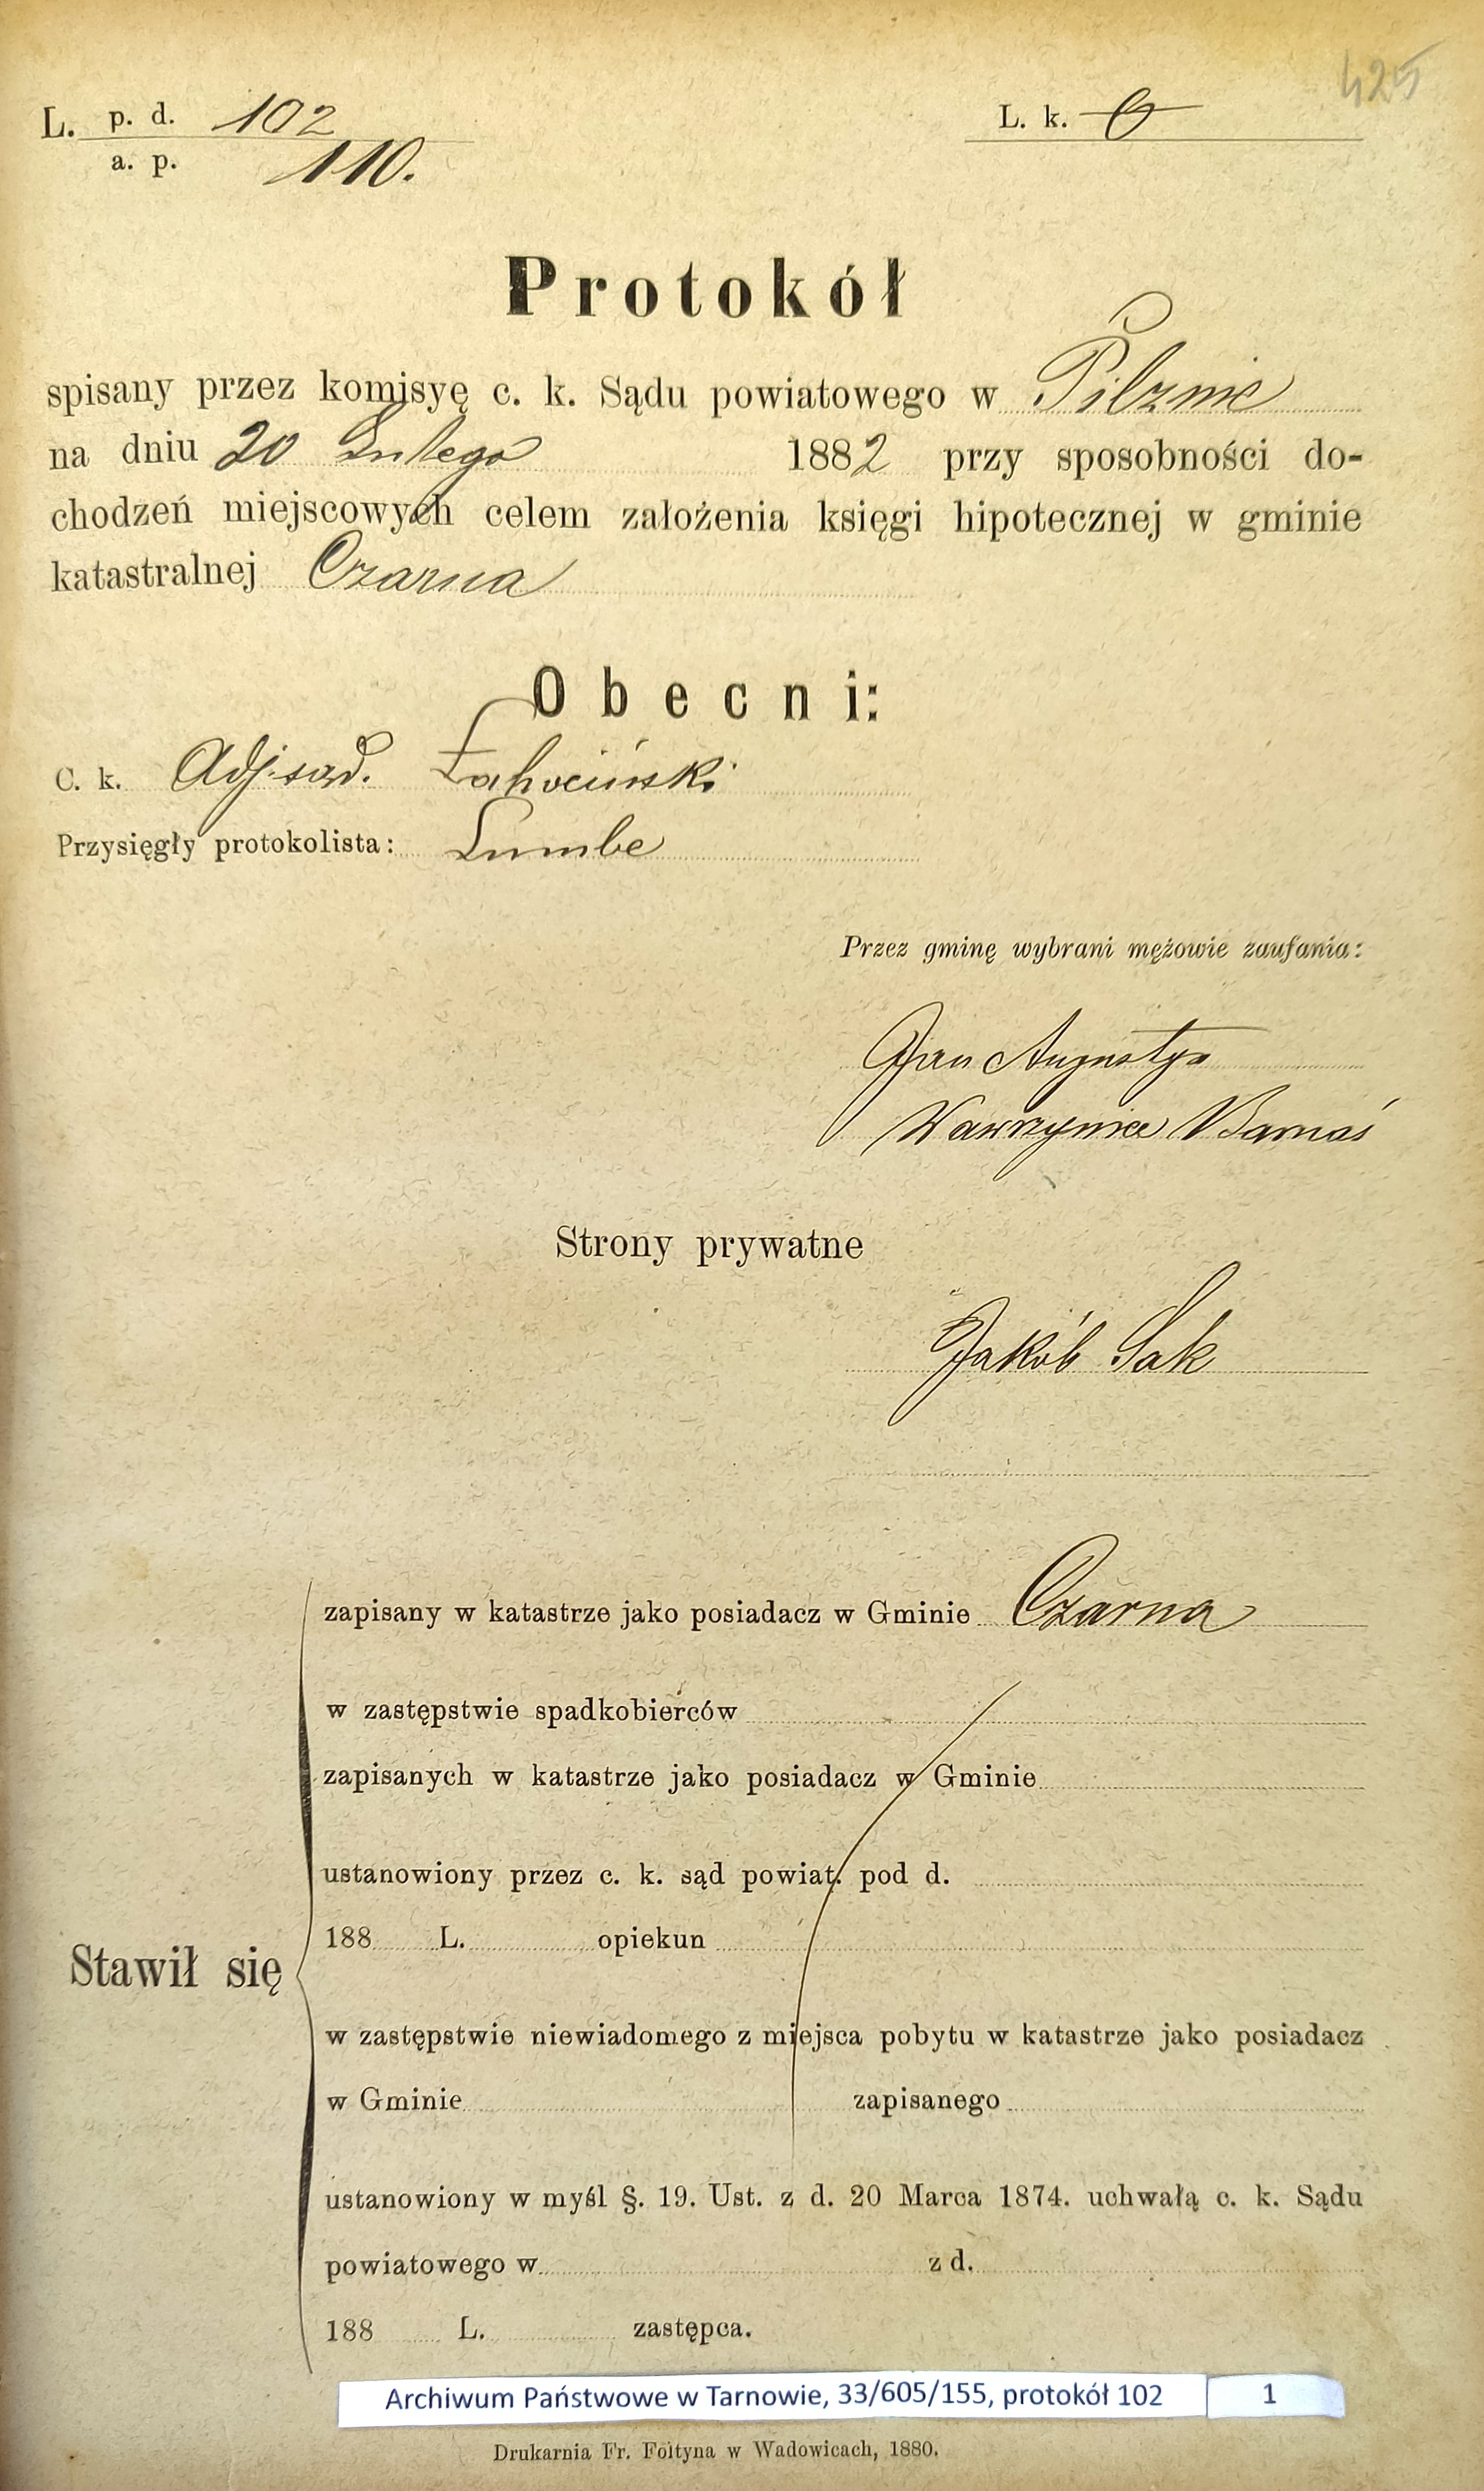 425
L. p. d. 102
a. p. 110.
L. k. 0
Protokół
spisany przez komisyę c. k. Sądu powiatowego w Pilznie
na dniu 20 Lutego 1882 przy sposobności do-
chodzeń miejscowych celem założenia księgi hipotecznej w gminie
katastralnej Czarna
Obecni:
C. k. Adj. sąd.
Przysięgły protokolista:
Przez gminę wybrani mężowie zaufania:
Jan Augustyn
Wawrzyniec Barnaś
Strony prywatne
Jakób Sak
zapisany w katastrze jako posiadacz w Gminie Czarna
w zastępstwie spadkobierców
zapisanych w katastrze jako posiadacz w Gminie
ustanowiony przez c. k. sąd powiat. pod d.
188 L. opiekun
Stawił się
w zastępstwie niewiadomego z miejsca pobytu w katastrze jako posiadacz
w Gminie zapisanego
ustanowiony w myśl §. 19. Ust. z d. 20 Marca 1874. uchwałą c. k. Sądu
powiatowego w z d.
188 L. zastępca.
Archiwum Państwowe w Tarnowie, 33/605/155, protokół 102 1
Drukarnia Fr. Foltyna w Wadowicach, 1880.